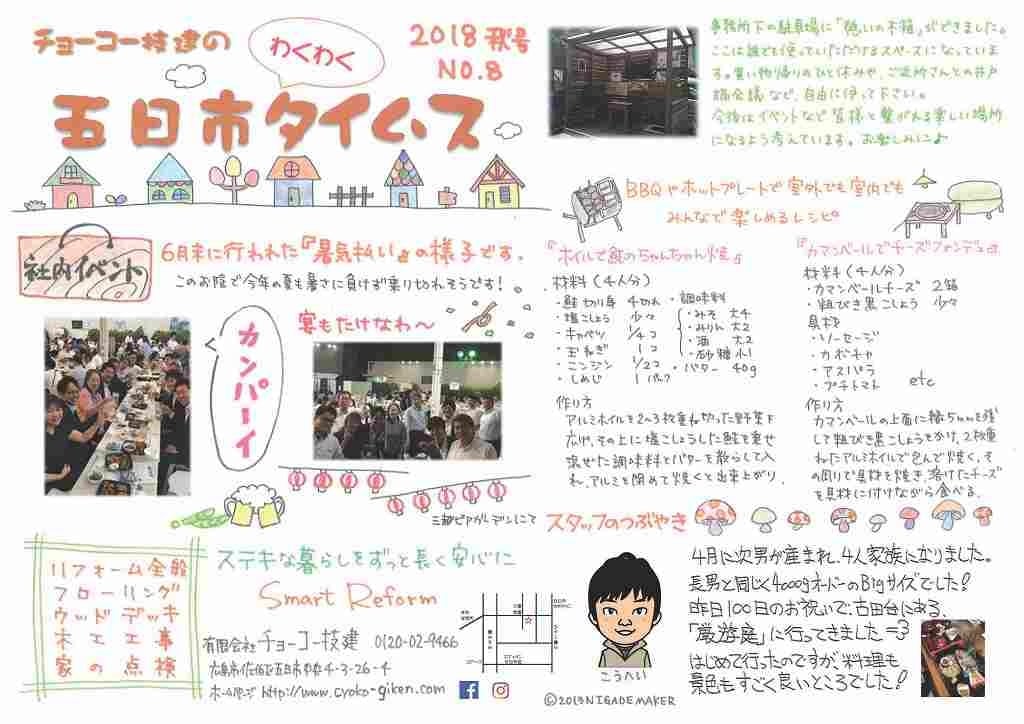 チョーコー技建の
わくわく
2018 秋号
NO.8
五日市タイムス
事務所下の駐車場に「憩いの木箱」ができました。
ここは誰でも使っていただけるスペースになっていま
す。買い物帰りのひと休みや、ご近所さんとの井戸
端会議など、自由に使って下さい。
今後はイベントなど皆様と繋がえる楽しい場所
になるよう考えています。お楽しみに♪
BBQやホットプレートで室外でも室内でも
みんなで楽しめるレシピ
社内イベント
6月末に行われた『暑気払い』の様子です。
このお陰で今年の夏も暑さに負けず乗り切れそうです!
カンパーイ
宴もたけなわ〜
三越ビアガーデンにて
『ホイルで鮭のちゃんちゃん焼』
材料(4人分)
・鮭切り身 4切れ
・塩こしょう 少々
・キャベツ 1/4コ
・玉ねぎ 1コ
・ニンジン 1/2コ
・しめじ 1パック
・調味料
・みそ 大4
・みりん 大2
・酒 大2
・砂糖 小1
・バター 40g
作り方
アルミホイルを2〜3枚重ね切った野菜を
広げ、その上に塩こしょうした鮭を乗せ
混ぜた調味料とバターを散らして入
れ、アルミを閉めて焼くと出来上がり。
『カマンベールでチーズフォンデュ』
材料(4人分)
・カマンベールチーズ 2箱
・粗びき黒こしょう 少々
具材
・ソーセージ
・カボチャ
・アスパラ
・プチトマト etc
作り方
カマンベールの上面に縁5mmを残
して粗びき黒こしょうをかけ、2枚重
ねたアルミホイルで包んで焼く。そ
の周りで具材を焼き、溶けたチーズ
を具材に付けながら食べる。
スタッフのつぶやき
4月に次男が産まれ、4人家族になりました。
長男と同じく4000gオーバーのBigサイズでした!
昨日100日のお祝いで、古田台にある、
「厳遊庭」に行ってきました=3
はじめて行ったのですが、料理も
景色もすごく良いところでした!
こうへい
©2013NIGAOEMAKER
リフォーム全般
フローリング
ウッドデッキ
木工工事
家の点検
ステキな暮らしをずっと長く安心に
Smart Reform
有限会社チョーコー技建 0120-02-9466
広島市佐伯区五日市中央4-3-26-4
ホームページ http://www.cyoko-giken.com